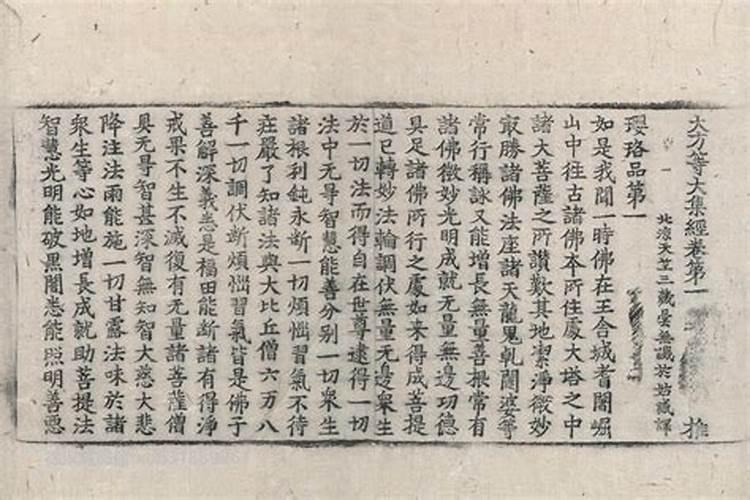 大方等大集經卷第一 推
北涼天竺三藏曇無讖於姑臧譯
瓔珞品第一
如是我聞一時佛在王舍城耆闍崛
山中往古諸佛本所住處大塔之中
諸大菩薩之所讚歎其地潔淨微妙
寂勝諸佛法座諸天龍鬼乹闥婆等
常行稱詠又能增長無量善根常有
諸佛微妙光明成就无量無邊功德
具足諸佛所行之處如来得成菩提
道已轉妙法輪調伏無量无邊衆生
於一切法而得自在世尊逮得一切
法中无㝵智慧能善分别一切衆生
諸根利鈍永斷一切煩惱習氣不待
莊嚴了知諸法與大比丘僧六万八
千一切調伏断煩惱習氣皆是佛子
善解深義悉是福田能斷諸有得淨
戒果不生不滅復有无量諸菩薩僧
具无㝵智甚深智無知智大慈大悲
降注法雨能施一切甘露法味於諸
衆生等心如地增長成就助菩提法
智慧光明能破黑闇悉能照明善惡